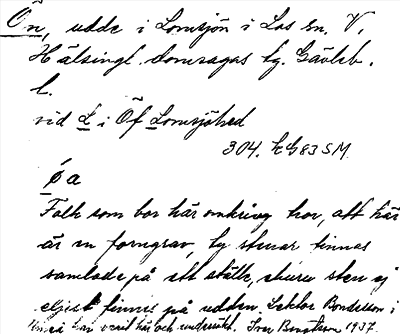 Ön, udde i Lomsjön i Los sn. V.
Hälsingl. domsagas tg. Gävleb.
l.
vid L i Öf Lomsjöhed
304. kg 83 SM
øa
Folk som bor här omkring tror, att här
är en forngrav, ty stenar finnas
samlade på ett ställe, churu sten ej
eljest finnes på udden Lektor Bondeson i
har varit här och undersökt. Ivar Bondeson 1937.